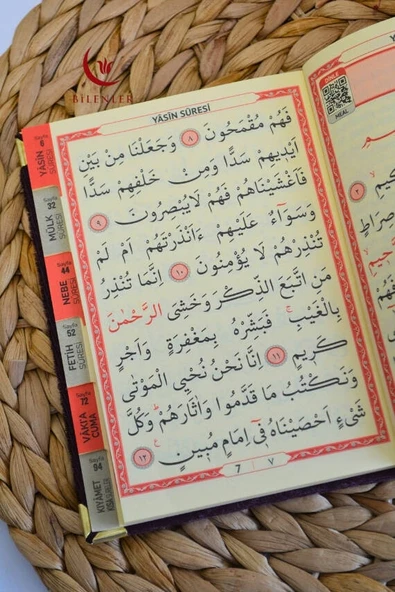 BİLENLER
YÂSÎN SÛRESİ
فَهُمْ مُقْمَحُونَ ٨ وَجَعَلْنَا مِنْ بَيْنِ
اَيْدِيهِمْ سَدًّا وَمِنْ خَلْفِهِمْ سَدًّا
فَاَغْشَيْنَاهُمْ فَهُمْ لَايُبْصِرُونَ ٩
وَسَوَٓاءٌ عَلَيْهِمْ ءَاَنْذَرْتَهُمْ اَمْ لَمْ
تُنْذِرْهُمْ لَا يُؤْمِنُونَ ١٠ اِنَّمَا تُنْذِرُ
مَنِ اتَّبَعَ الذِّكْرَ وَخَشِيَ الرَّحْمٰنَ
بِالْغَيْبِۚ فَبَشِّرْهُ بِمَغْفِرَةٍ وَاَجْرٍ
كَرِيمٍ ١١ اِنَّا نَحْنُ نُحْيِي الْمَوْتٰى
وَنَكْتُبُ مَا قَدَّمُوا وَاٰثَارَهُمْۜ وَكُلَّ
شَيْءٍ اَحْصَيْنَاهُ فِٓي اِمَامٍ مُبِينٍ ١٢
7 ٧
Sayfa 6 YÂSÎN SÛRESİ
Sayfa 32 MÜLK SÛRESİ
Sayfa 44 NEBE SÛRESİ
Sayfa 52 FETİH SÛRESİ
Sayfa 72 VÂKIA CUMA
Sayfa 94 KIYÂMET
DİNLE
MEAL